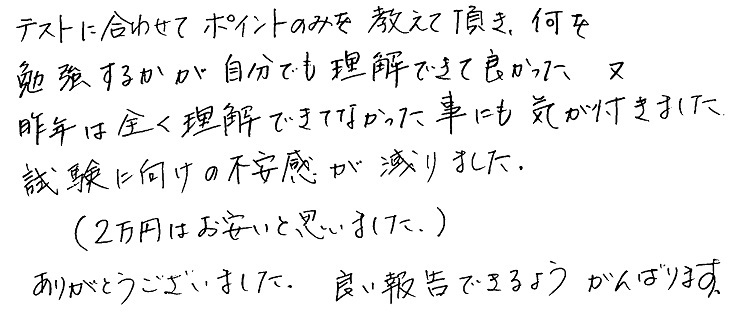 テストに合わせて ポイントのみを 教えて頂き、何を
勉強するかが 自分でも 理解できて良かった 又
昨年は全く理解できてなかった事にも 気が付きました
試験に向けの不安感が 減りました.
(2万円はお安いと思いました.)
ありがとうございました. 良い報告できるよう がんばります.